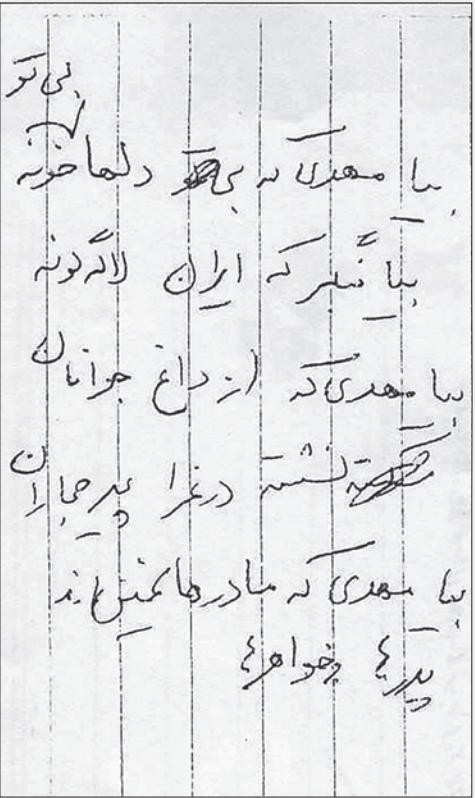 بی تو
بیا مهدی که بی تو دلها خونه
بیا بنگر که ایران لاله گونه
بیا مهدی که از داغ جوانان
نشسته در عزا پیر جماران
بیا مهدی که مادرها غمین اند
پدرها خواهرها